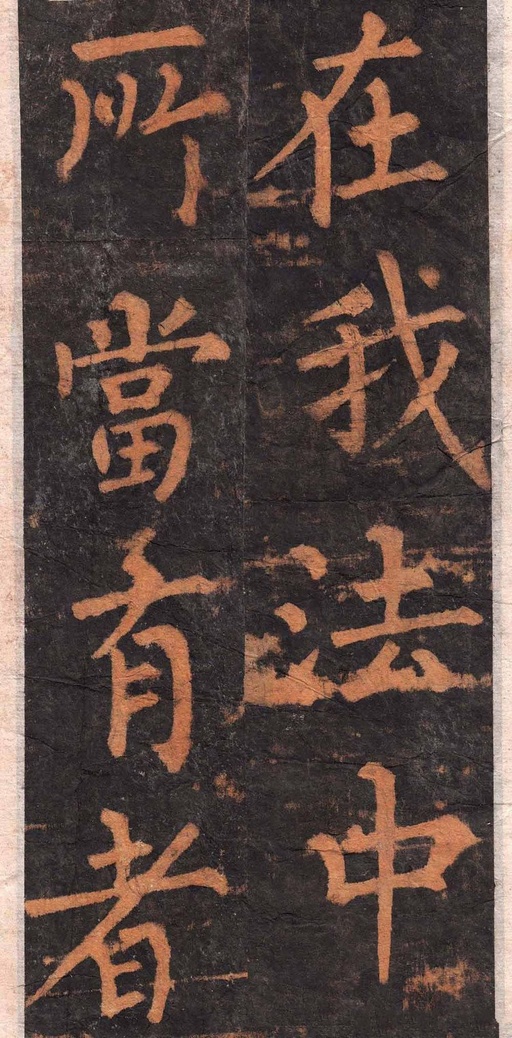 在我法中
所當有者